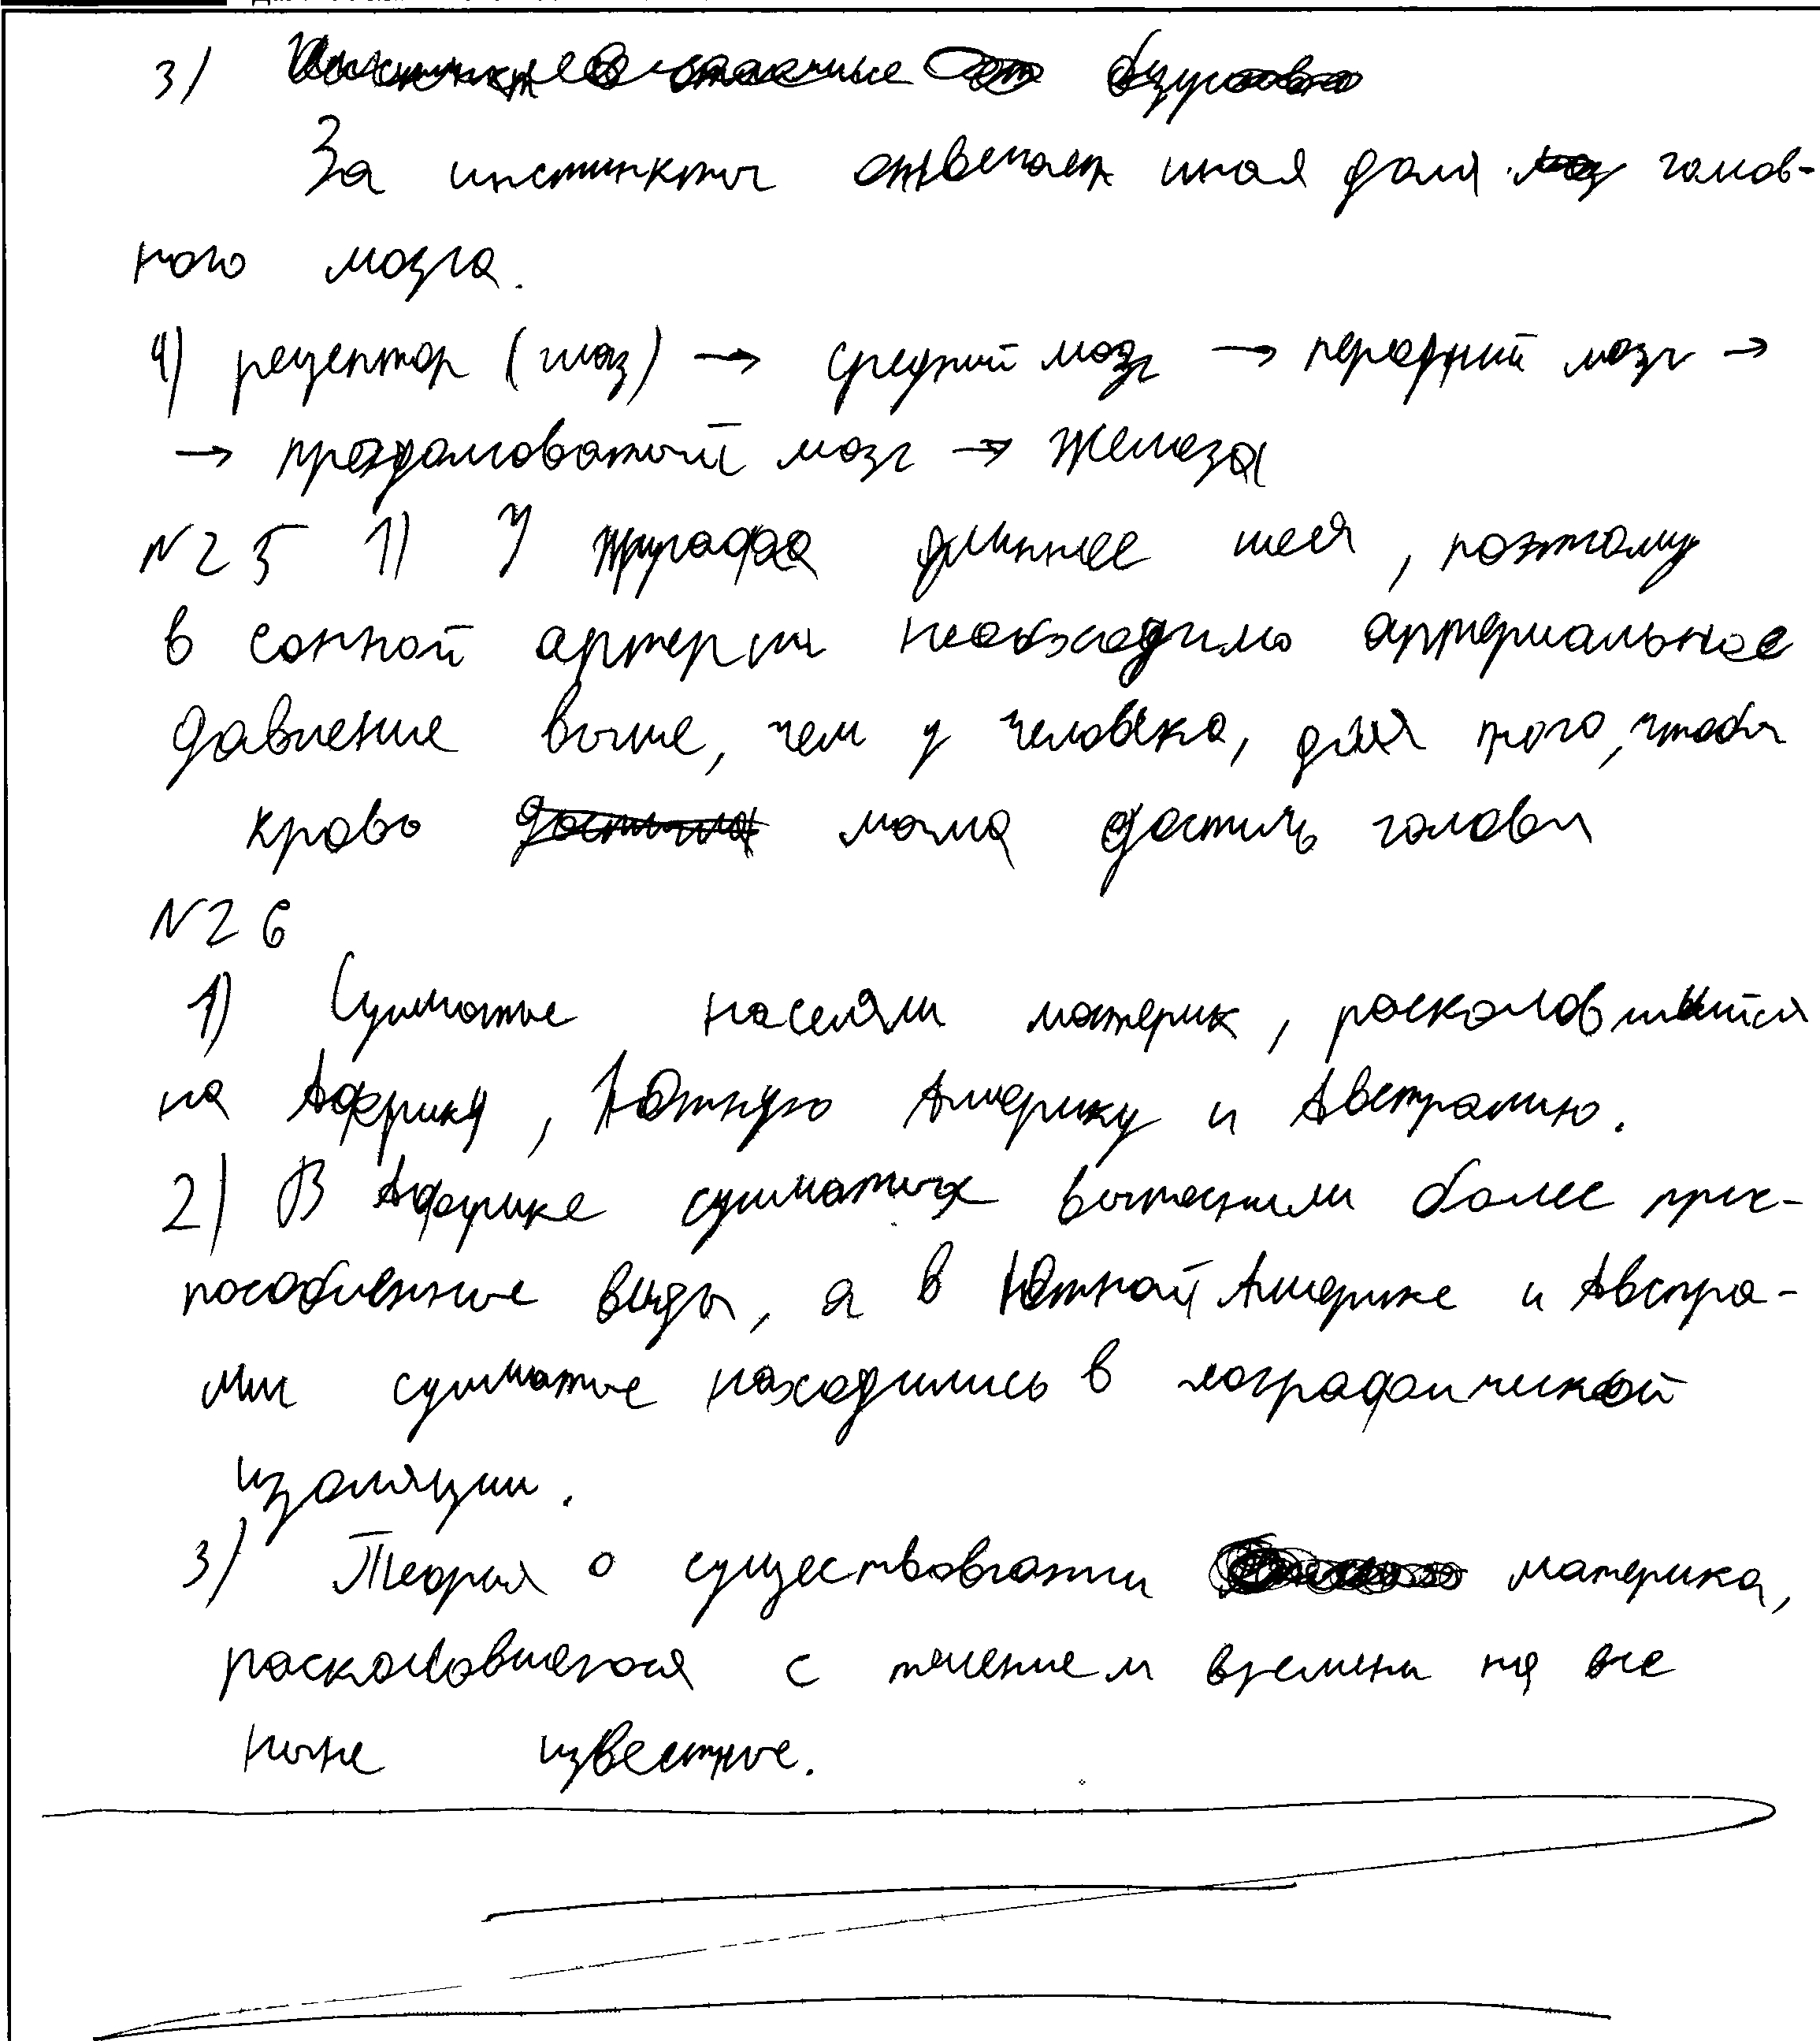 3)
За инстинкты отвечает иная доля голов-
ного мозга.
4) рецептор (глаз) → средний мозг → передний мозг →
→ продолговатый мозг → железа
№25 1) У жирафа длиннее шея, поэтому
в сонной артерии необходимо артериальное
давление выше, чем у человека, для того, чтобы
кровь могла достичь головы
№26
1) Сумчатые населяли материк, расколовшийся
на Африку, Южную Америку и Австралию.
2) В Африке сумчатых вытеснили более прис-
пособленные виды, а в Южной Америке и Австра-
лии сумчатые находились в географической
изоляции.
3) Теория о существовании материка,
расколовшегося с течением времени на все
ныне известные.